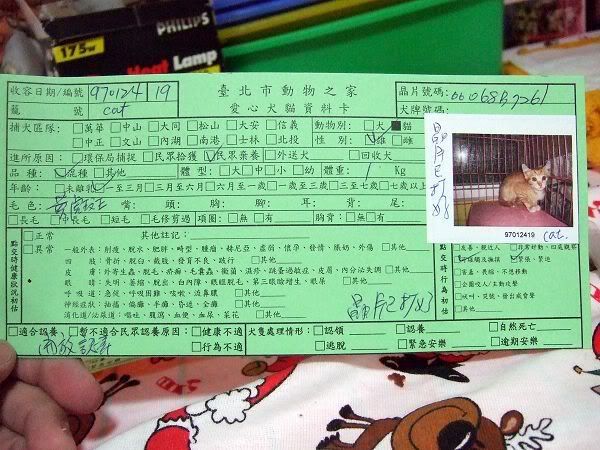 PHILIPS
175w
Heat Lamp
收容日期/編號 970124 19
臺北市動物之家
晶片號碼:
籠 號 cat
愛心犬貓資料卡
犬牌號碼:
捕犬區隊: □萬華 □中山 □大同 □松山 □大安 □信義 動物別: □犬 ■貓
□中正 □文山 □內湖 □南港 □士林 □北投 性 別: □雄 □雌
進所原因: □環保局捕捉 □民眾拾獲 □民眾棄養 □外送犬 □回收犬
品 種: □混種 □其他 體 型: □大□中□小□幼 體重: Kg
年齡: □未離乳 □一至三月 □三月至六月 □六月至一歲 □一歲至三歲 □三歲至七歲 □七歲以上
毛 色: 頭: 胸: 腳: 耳: 背: 尾:
□長毛 □中長毛 □短毛 □毛修剪過 項圈: □無 □有 胸背: □無 □有
晶片已打好
97012419 cat.
點交時健康狀況初估
□正常
□異常
其他註記:
一般外表: 削瘦、脫水、肥胖、畸型、腫瘤、赫尼亞、虛弱、懷孕、發情、脹奶、外傷 □其他
四 肢: 骨折、脫臼、截肢、發育不良、跛行 □其他
皮 膚: 外寄生蟲、脫毛、疥癬、毛囊蟲、黴菌、濕疹、跳蚤過敏症、皮屑、內分泌失調 □其他
眼 睛: 失明、萎縮、脫出、白內障、眼瞼脫毛、第三眼瞼增生、眼屎 □其他
呼 吸 道: 急促、呼吸困難、咳嗽、流鼻膿 □其他
神經症狀: 抽搐、偏癱、半癱、昏迷、全癱 □其他
消化道/泌尿道: 嘔吐、腹瀉、血便、血尿、茶花 □其他
晶片已打好
點交時行為初估
□友善、親近人
□非常好動、四處觀察
□緊張、緊迫
□害羞、畏縮、不想移動
□企圖咬人/主動攻擊
□吠叫、哭號、發出威脅聲
□其他
□適合認養 □暫不適合民眾認養原因: □健康不適
□行為不適
犬隻處理情形: □認領 □認養 □自然死亡
□逃脫 □緊急安樂 □逾期安樂